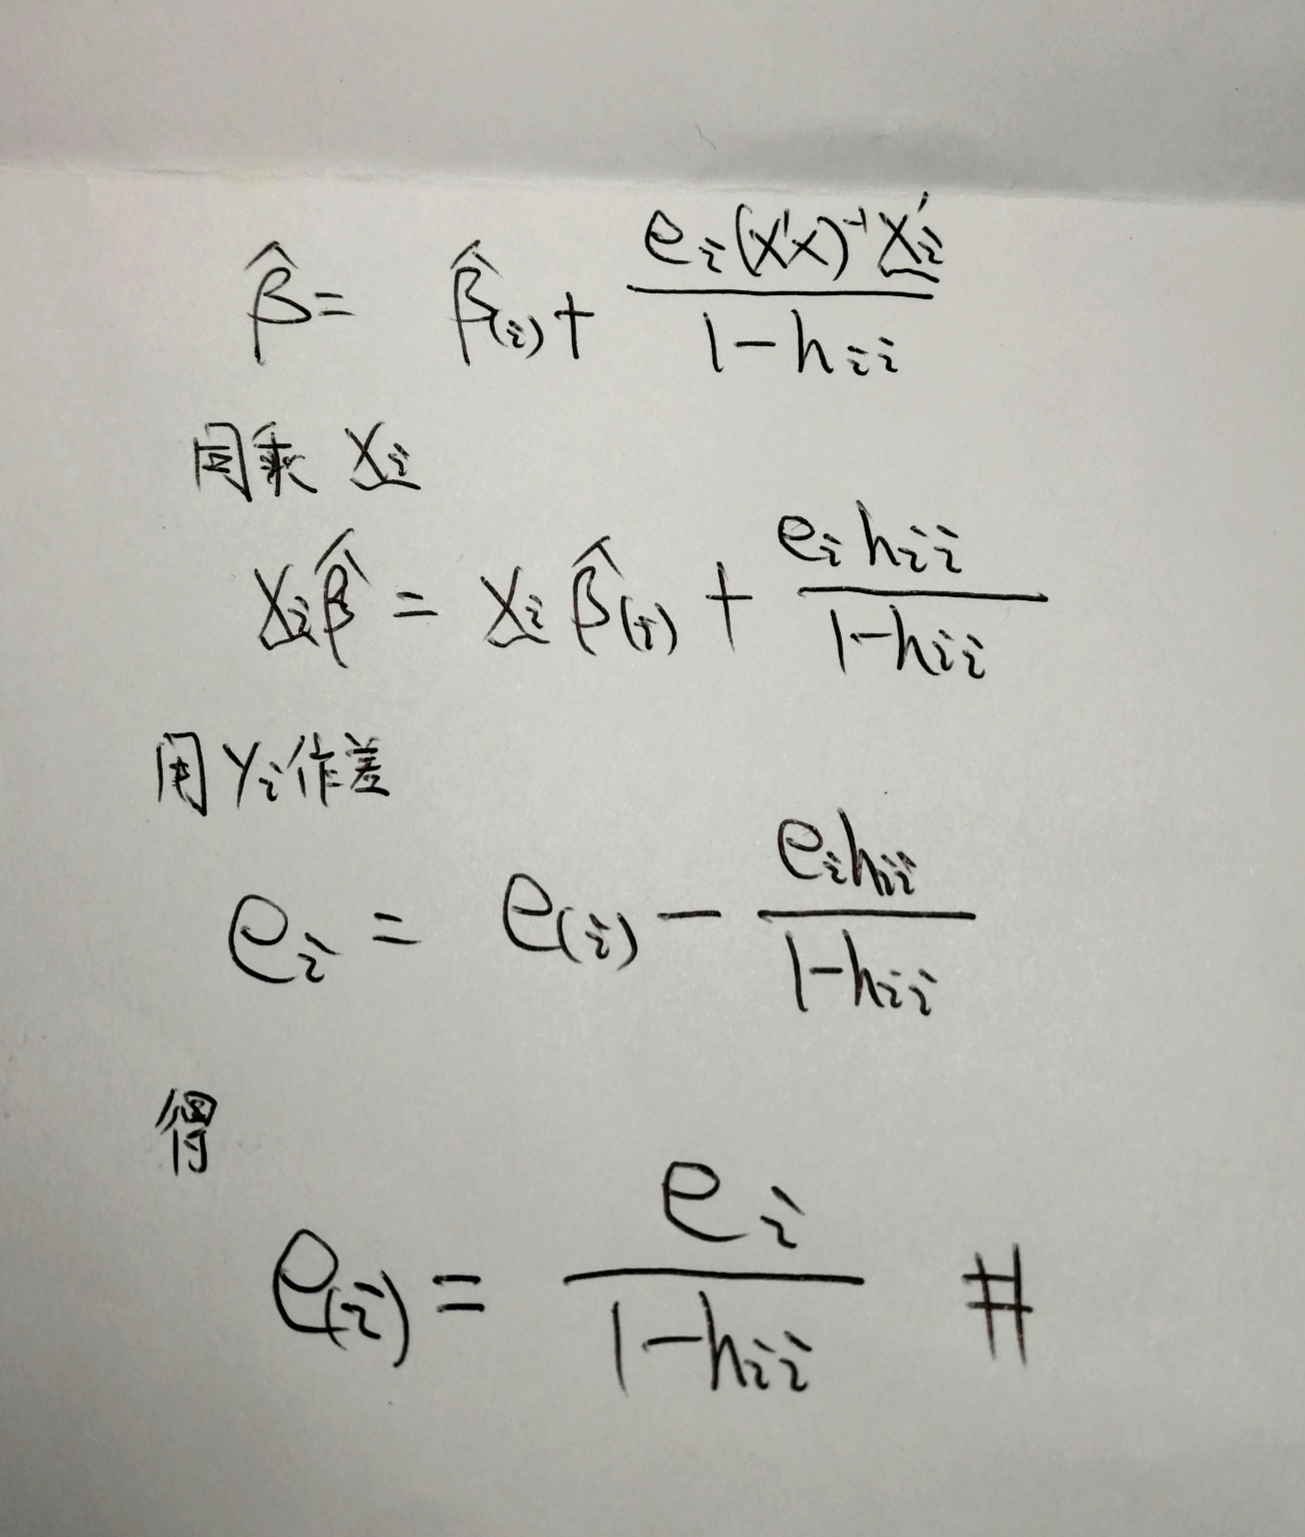 β̂ = β̂(i) + eᵢ(X'X)⁻¹X̲ᵢ' / (1-hᵢᵢ)
同乘 X̲ᵢ
X̲ᵢβ̂ = X̲ᵢβ̂(i) + eᵢhᵢᵢ / (1-hᵢᵢ)
用 Yᵢ作差
eᵢ = e(i) - eᵢhᵢᵢ / (1-hᵢᵢ)
得
e(i) = eᵢ / (1-hᵢᵢ) #